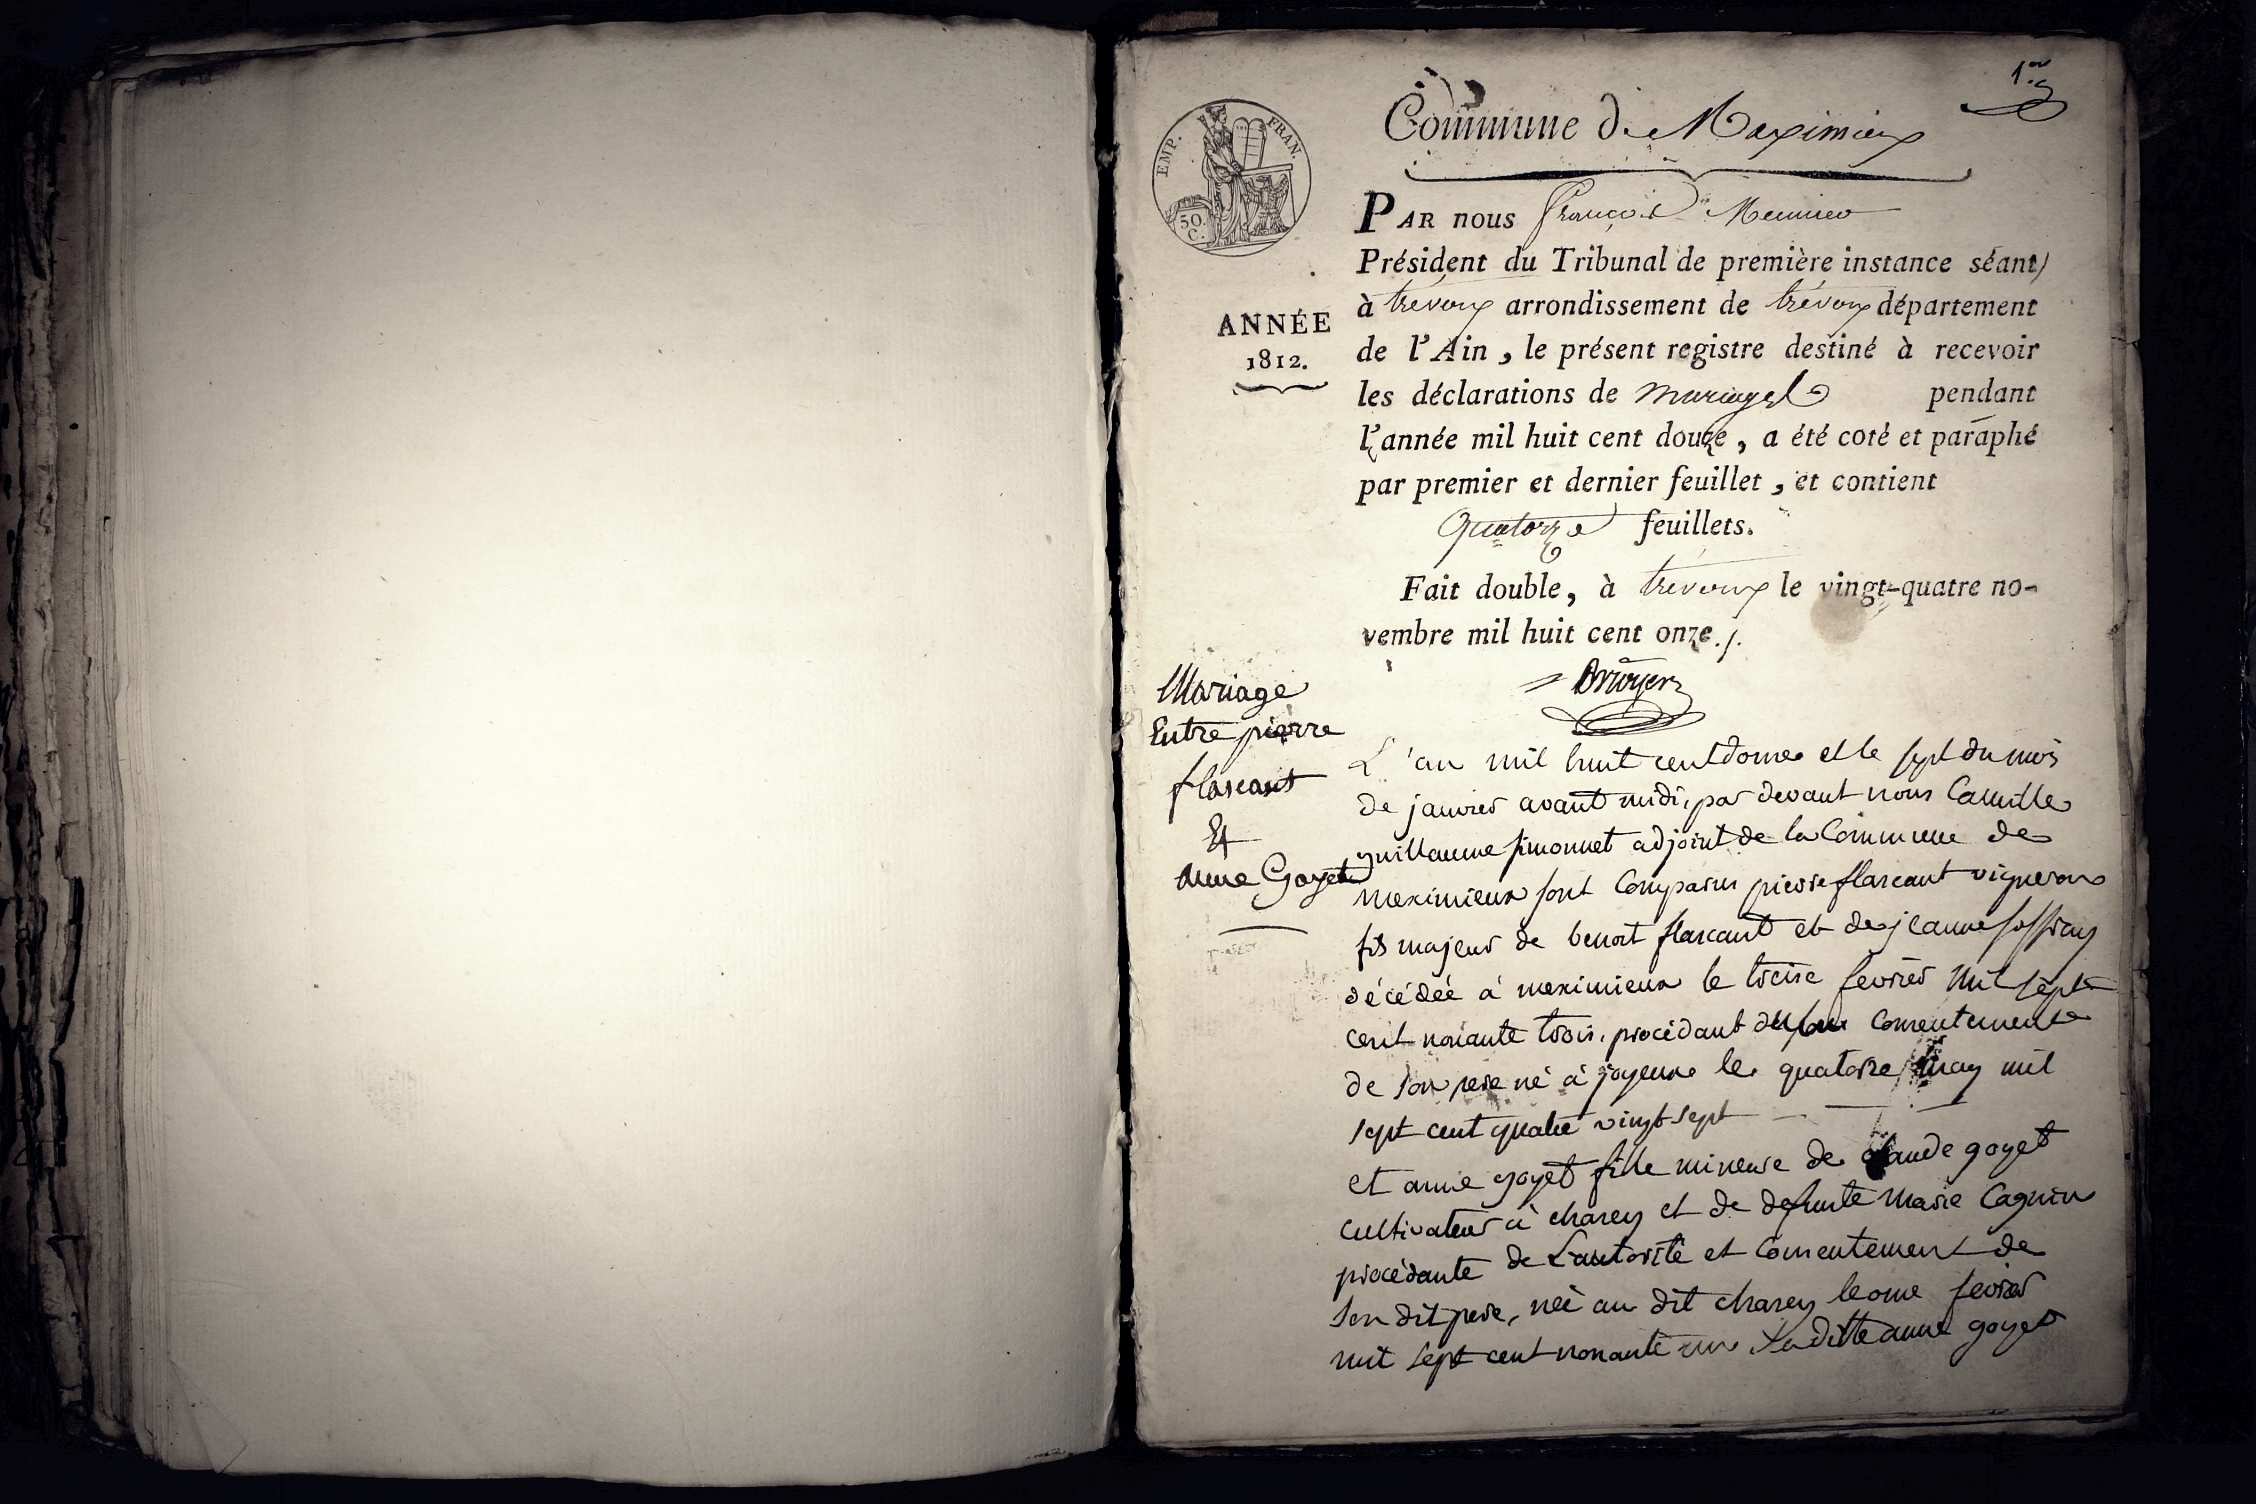 1.er
Commune de Meximieux
EMP. FRAN.
50 C.
PAR nous François Meunier
Président du Tribunal de première instance séant
à trévoux arrondissement de trévoux département
ANNÉE
1812.
de l'Ain, le présent registre destiné à recevoir
les déclarations de mariages pendant
l'année mil huit cent douze, a été coté et paraphé
par premier et dernier feuillet, et contient
Quatorze feuillets.
Fait double, à trévoux le vingt-quatre no-
vembre mil huit cent onze.
Mariage
Entre pierre
flascaut
Et
anne Goyet
L'an mil huit cent douze et le sept du mois
de janvier avant midi, par devant nous Camille
guillaume simonnet adjoint de la Commune de
meximieux sont Comparus pierre flascaut vigneron
fils majeur de benoit flascaut et de jeanne
décédée à meximieux le treize fevrier mil sept
cent nonante trois, procédant du consentement
de son pere né à joyeux le quatorze may mil
sept cent quatre vingt sept
et anne goyet fille mineure de claude goyet
cultivateur à charey et de defunte Marie Cagnin
procédante de L'autorité et consentement de
son dit pere, née au dit charey le onze fevrier
mil sept cent nonante un La ditte anne goyet